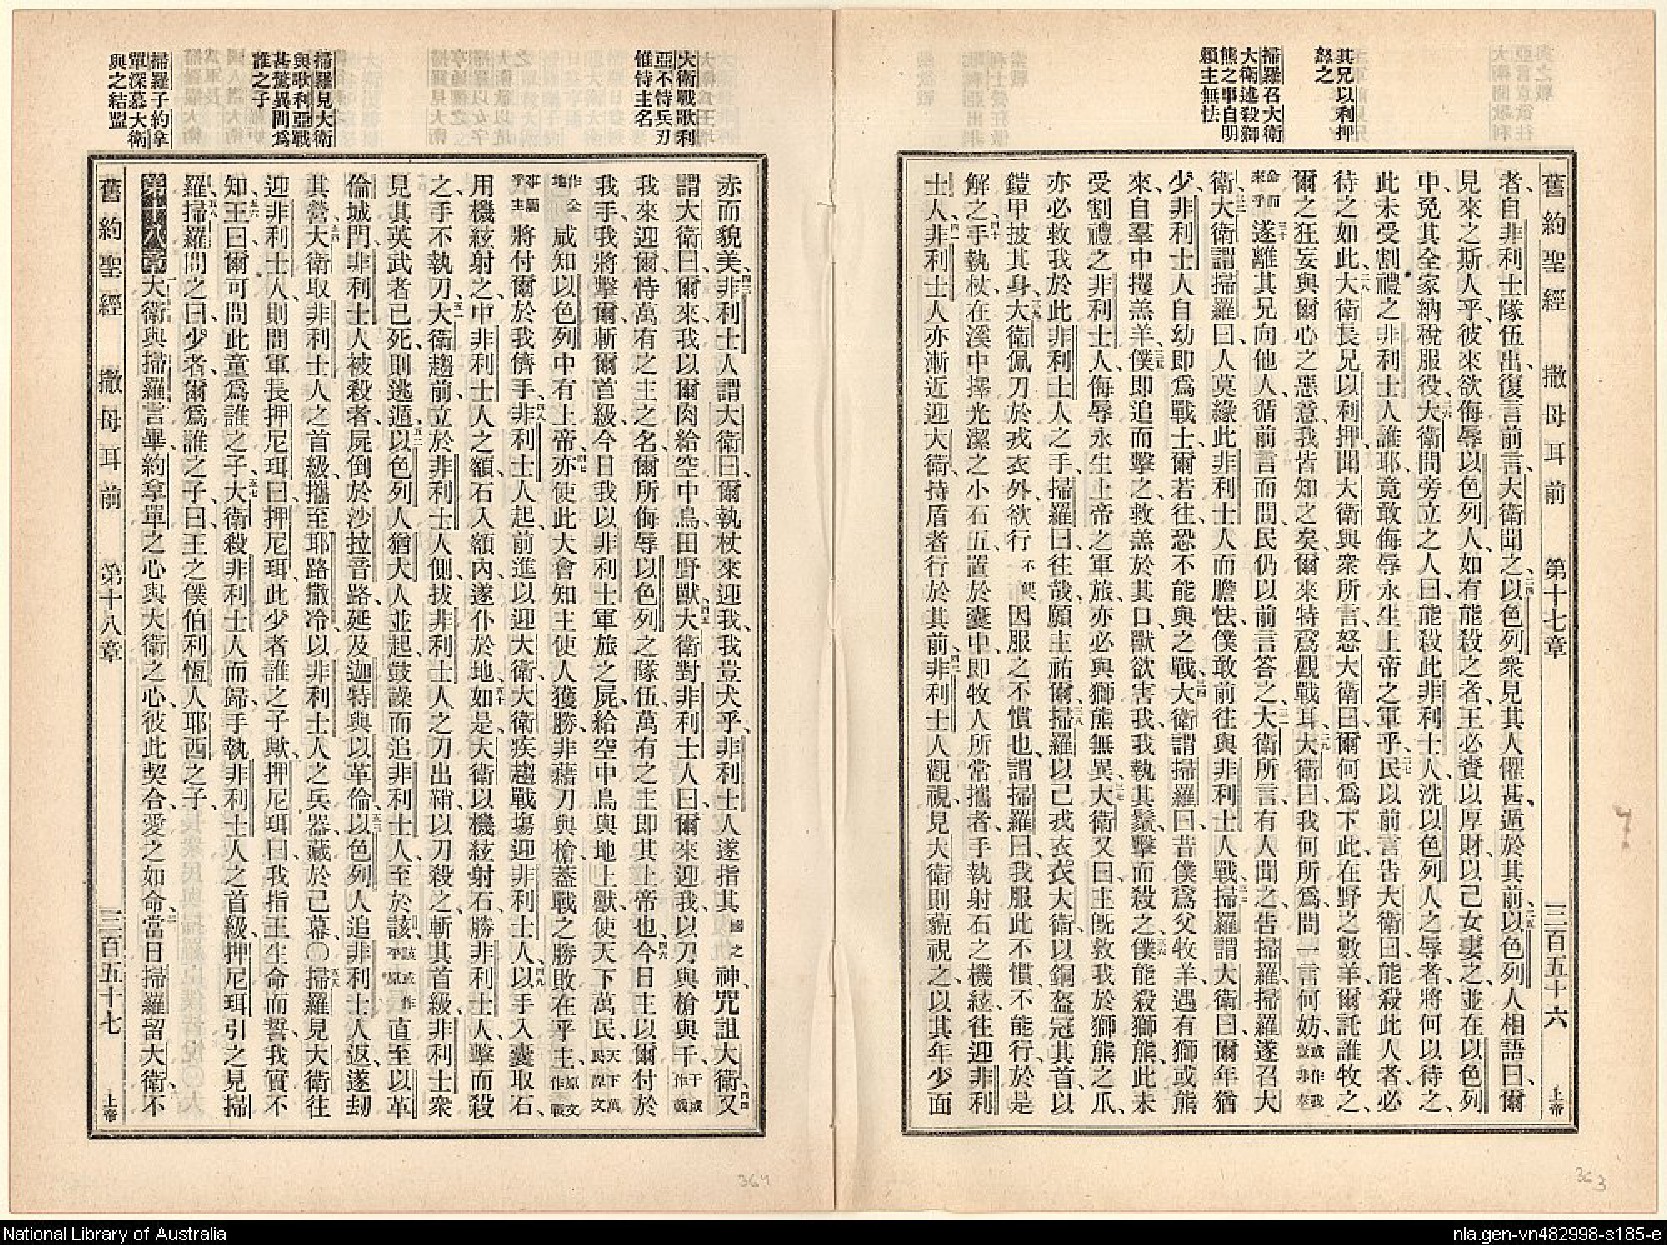 其兄以利押
怒之
掃羅召大衛
大衛述殺獅
熊之事自明
賴主無怯
舊約聖經 撒母耳前 第十七章 三百五十六 上帝
者自非利士隊伍出復言前言大衛聞之以色列眾見其人懼甚遁於其前以色列人相語曰爾
見來之斯人乎彼來欲侮辱以色列人如有能殺之者王必賚以厚財以己女妻之並在以色列
中免其全家納稅服役大衛問旁立之人曰能殺此非利士人洗以色列人之辱者將何以待之
此未受割禮之非利士人誰耶竟敢侮辱永生上帝之軍乎民以前言告大衛曰能殺此人者必
待之如此大衛長兄以利押聞大衛與眾所言怒大衛曰爾何為下此在野之數羊爾託誰牧之
爾之狂妄與爾心之惡意我皆知之矣爾來特為觀戰耳大衛曰我何所為問一言何妨或作我豈非奉
命而來乎遂離其兄向他人循前言而問民仍以前言答之大衛所言有人聞之告掃羅掃羅遂召大
衛大衛謂掃羅曰人莫緣此非利士人而膽怯僕敢前往與非利士人戰掃羅謂大衛曰爾年猶
少非利士人自幼即為戰士爾若往恐不能與之戰大衛謂掃羅曰昔僕為父牧羊遇有獅或熊
來自羣中攫羔羊僕即追而擊之救羔於其口獸欲害我我執其鬚擊而殺之僕能殺獅熊此未
受割禮之非利士人侮辱永生上帝之軍旅亦必與獅熊無異大衛又曰主既救我於獅熊之爪
亦必救我於此非利士人之手掃羅曰往哉願主祐爾掃羅以己戎衣衣大衛以銅盔冠其首以
鎧甲披其身大衛佩刀於戎衣外欲行不便因服之不慣也謂掃羅曰我服此不慣不能行於是
解之手執杖在溪中擇光潔之小石五置於囊中即牧人所常攜者手執射石之機絃往迎非利
士人非利士人亦漸近迎大衛持盾者行於其前非利士人觀視見大衛則藐視之以其年少面
大衛戰歌利
亞不恃兵刃
惟恃主名
掃羅見大衛
與歌利亞戰
甚驚異問為
誰之子
掃羅子約拿
單深慕大衛
與之結盟
赤而貌美非利士人謂大衛曰爾執杖來迎我我豈犬乎非利士人遂指其國之神咒詛大衛又
謂大衛曰爾來我以爾肉給空中鳥田野獸大衛對非利士人曰爾來迎我以刀與槍與干干或作戟
我來迎爾恃萬有之主之名爾所侮辱以色列之隊伍萬有之主即其上帝也今日主以爾付於
我手我將擊爾斬爾首級今日我以非利士軍旅之屍給空中鳥與地上獸使天下萬民天下萬民原文
作全地咸知以色列中有上帝亦使此大會知主使人獲勝非藉刀與槍蓋戰之勝敗在乎主原文作戰
事屬乎主將付爾於我儕手非利士人起前進以迎大衛大衛疾趨戰場迎非利士人以手入囊取石
用機絃射之中非利士人之額石入額內遂仆於地如是大衛以機絃射石勝非利士人擊而殺
之手不執刀大衛趨前立於非利士人側拔非利士人之刀出鞘以刀殺之斬其首級非利士眾
見其英武者已死則逃遁以色列人猶大人並起鼓譟而追非利士人至於該該或作平原直至以革
倫城門非利士人被殺者屍倒於沙拉音路延及迦特與以革倫以色列人追非利士人返遂劫
其營大衛取非利士人之首級攜至耶路撒冷以非利士人之兵器藏於己幕○掃羅見大衛往
迎非利士人則問軍長押尼珥曰押尼珥此少者誰之子歟押尼珥曰我指王生命而誓我實不
知王曰爾可問此童為誰之子大衛殺非利士人而歸手執非利士人之首級押尼珥引之見掃
羅掃羅問之曰少者爾為誰之子曰王之僕伯利恆人耶西之子
第十八章大衛與掃羅言畢約拿單之心與大衛之心彼此契合愛之如命當日掃羅留大衛不
舊約聖經 撒母耳前 第十八章 三百五十七 上帝
364
363
National Library of Australia
nla.gen-vn482998-s185-e